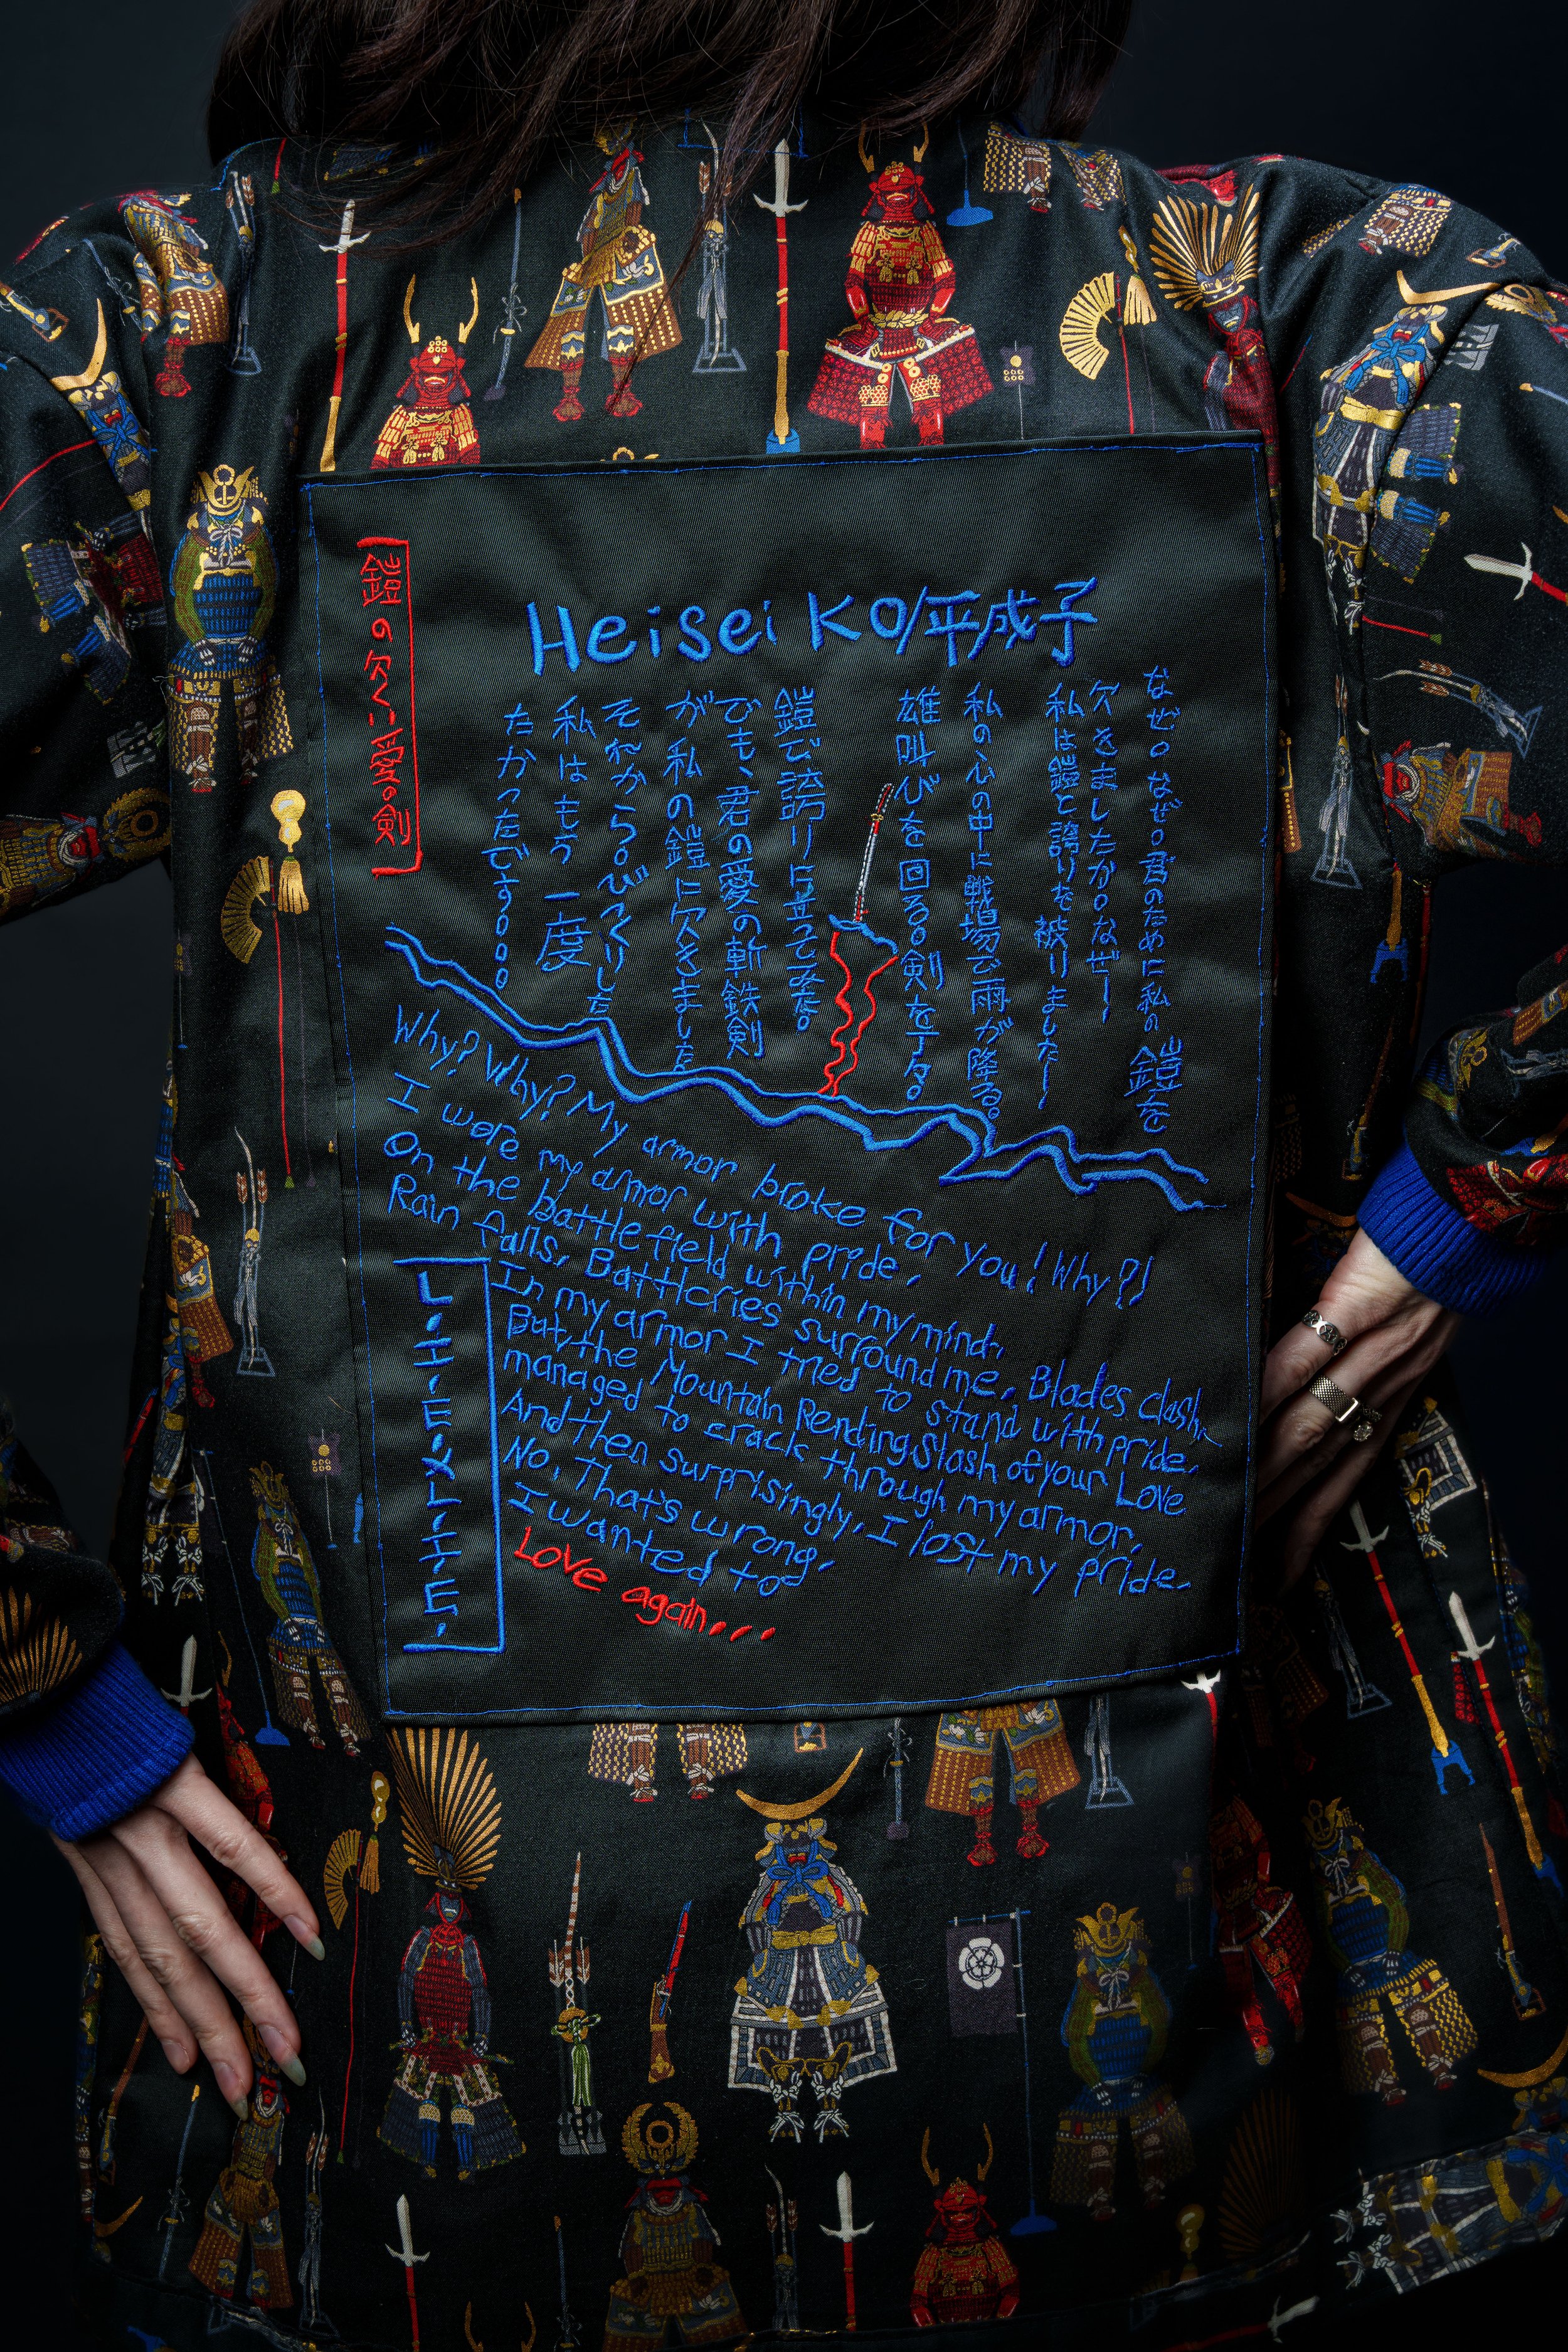 Heisei KO/平成子
鎧の欠く愛の剣
なぜ。なぜ。君のために私の鎧を
欠きましたか。なぜー
私は鎧と誇りを被りましたー
私の心の中に戦場で雨が降る。
雄叫びを回る。剣を
鎧で誇りに立ってみた。
でも、君の愛の斬鉄剣
が私の鎧に欠きました
それから。びっくりした
私はもう一度
たかったです。。。
Why? Why? My armor broke for you! Why?!
I wore my armor with pride.
On the battlefield within my mind.
Rain falls. Battlecries surround me. Blades clash.
In my armor I tried to stand with pride.
But, the Mountain Rending Slash of your Love
managed to crack through my armor.
And then surprisingly, I lost my pride.
No. That's wrong.
I wanted to
Love again...